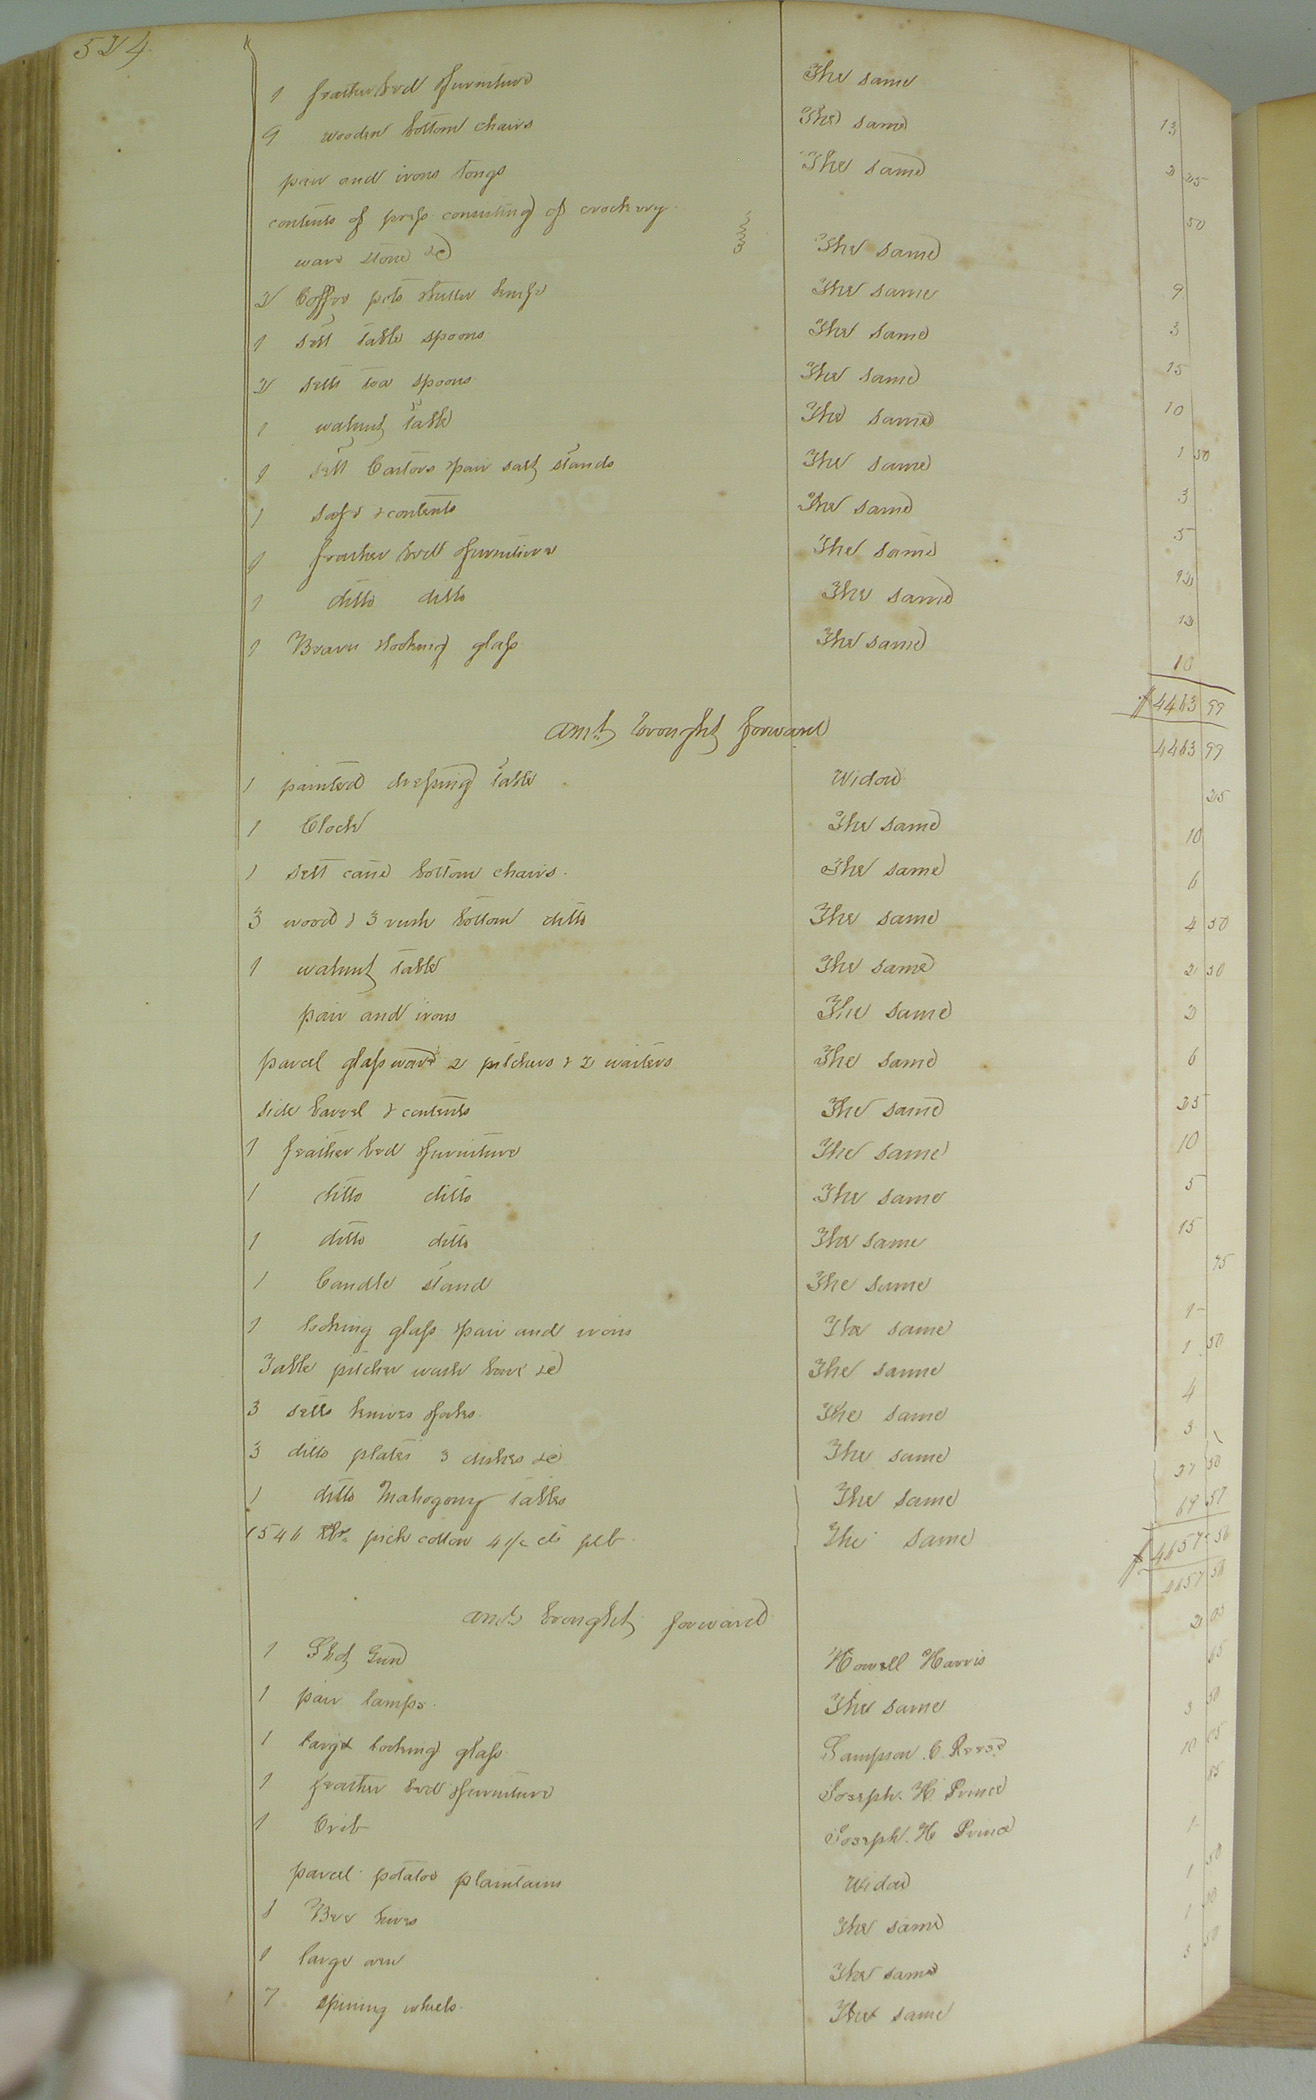 524
1 feather bed & furniture The same
9 wooden bottom chairs The same 13
pair and irons tongs The same 2 25
contents of press consisting of crockery 50
ware stone &c The same
2 Coffee pots & knife The same 9
1 sett table spoons The same 3
2 setts tea spoons The same 15
1 walnut table The same 10
1 sett Castors & pair salt stands The same 1 50
1 safe & contents The same 3
1 feather bed & furniture The same 5
1 ditto ditto The same 12
1 Beaura & looking glass The same 13
10
$4463 99
amt brought forward 4463 99
1 painted dressing table Widow 25
1 Clock The same 10
1 sett cane bottom chairs The same 6
3 wood & 3 rush bottom ditto The same 4 50
1 walnut table The same 2 50
pair and irons The same 2
parcel glassware 2 pitchers & 2 waiters The same 6
side board & contents The same 25
1 feather bed & furniture The same 10
1 ditto ditto The same 5
1 ditto ditto The same 15
1 Candle stand The same 75
1 looking glass & pair and irons The same 1
Table pitcher wash bowl &c The same 1 50
3 setts knives & forks The same 4
3 ditto plates 3 dishes &c The same 3
1 ditto Mahogony tables The same 37 50
1546 lbs pick cotton 4 1/2 cts pr lb The same 69 57
$4657 56
amt brought forward 4657 56
1 Shot Gun Howell Harris
1 pair lamps The same
1 large looking glass Sampson C Reese
1 feather bed & furniture Joseph H Prince
1 Crib Joseph H Prince
parcel potatoe plantains Widow
1 Bee hives The same
1 large oven The same
7 spining wheels The same